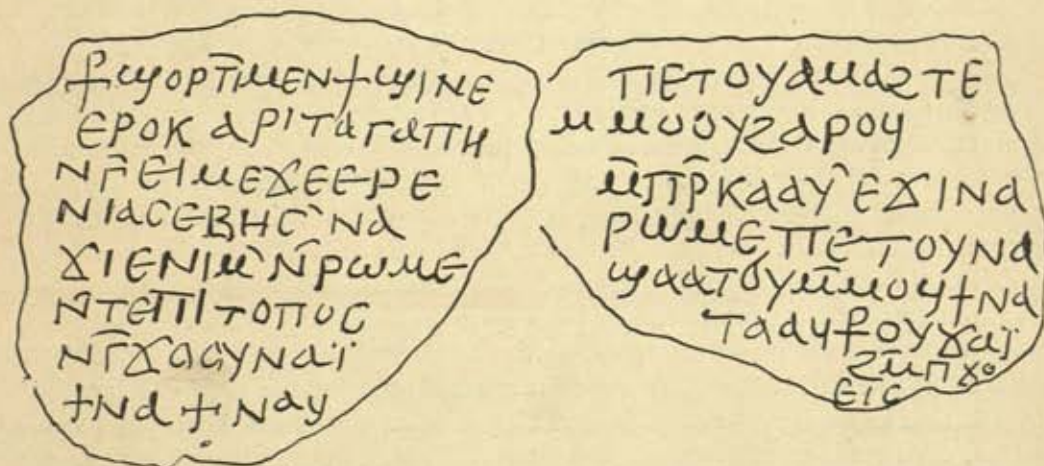 ⳨ϣⲟⲣⲡ̄ⲙⲉⲛϯϣⲓⲛⲉ
ⲉⲣⲟⲕ ⲁⲣⲓⲧⲁⲅⲁⲡⲏ
ⲛⲅ̄ⲉⲓⲙⲉϫⲉⲉⲣⲉ
ⲛⲓⲁⲥⲉⲃⲏⲥ̀ⲛⲁ
ϫⲓⲉⲛⲓⲙ̀ⲛ̄ⲣⲱⲙⲉ
ⲛ̄ⲧⲉⲡⲓⲧⲟⲡⲟⲥ
ⲛⲅ̄ϫⲟⲟϥⲛⲁⲓ̈
ϯⲛⲁϯⲛⲁϥ
ⲡⲉⲧⲟⲩⲁⲙⲁϩⲧⲉ
ⲙⲙⲟⲟⲩϩⲁⲣⲟϥ
ⲙ̄ⲡⲣ̄ⲕⲁⲁϥ̀ⲉϫⲓⲛⲁ
ⲣⲱⲙⲉⲡⲉⲧⲟⲩⲛⲁ
ϣⲁⲁⲧⲟⲩⲙ̄ⲙⲟϥϯⲛⲁ
ⲧⲁⲁϥ⳨ⲟⲩϫⲁⲓ̈
ϩⲙ̄ⲡϫⲟ
ⲉⲓⲥ